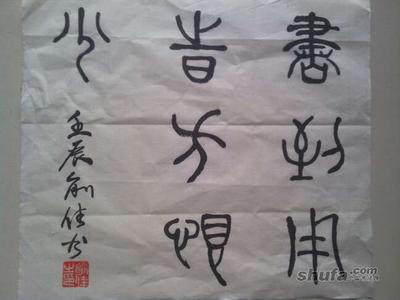 書到用
旹方恨
少
壬辰俞佳书
shufa.com